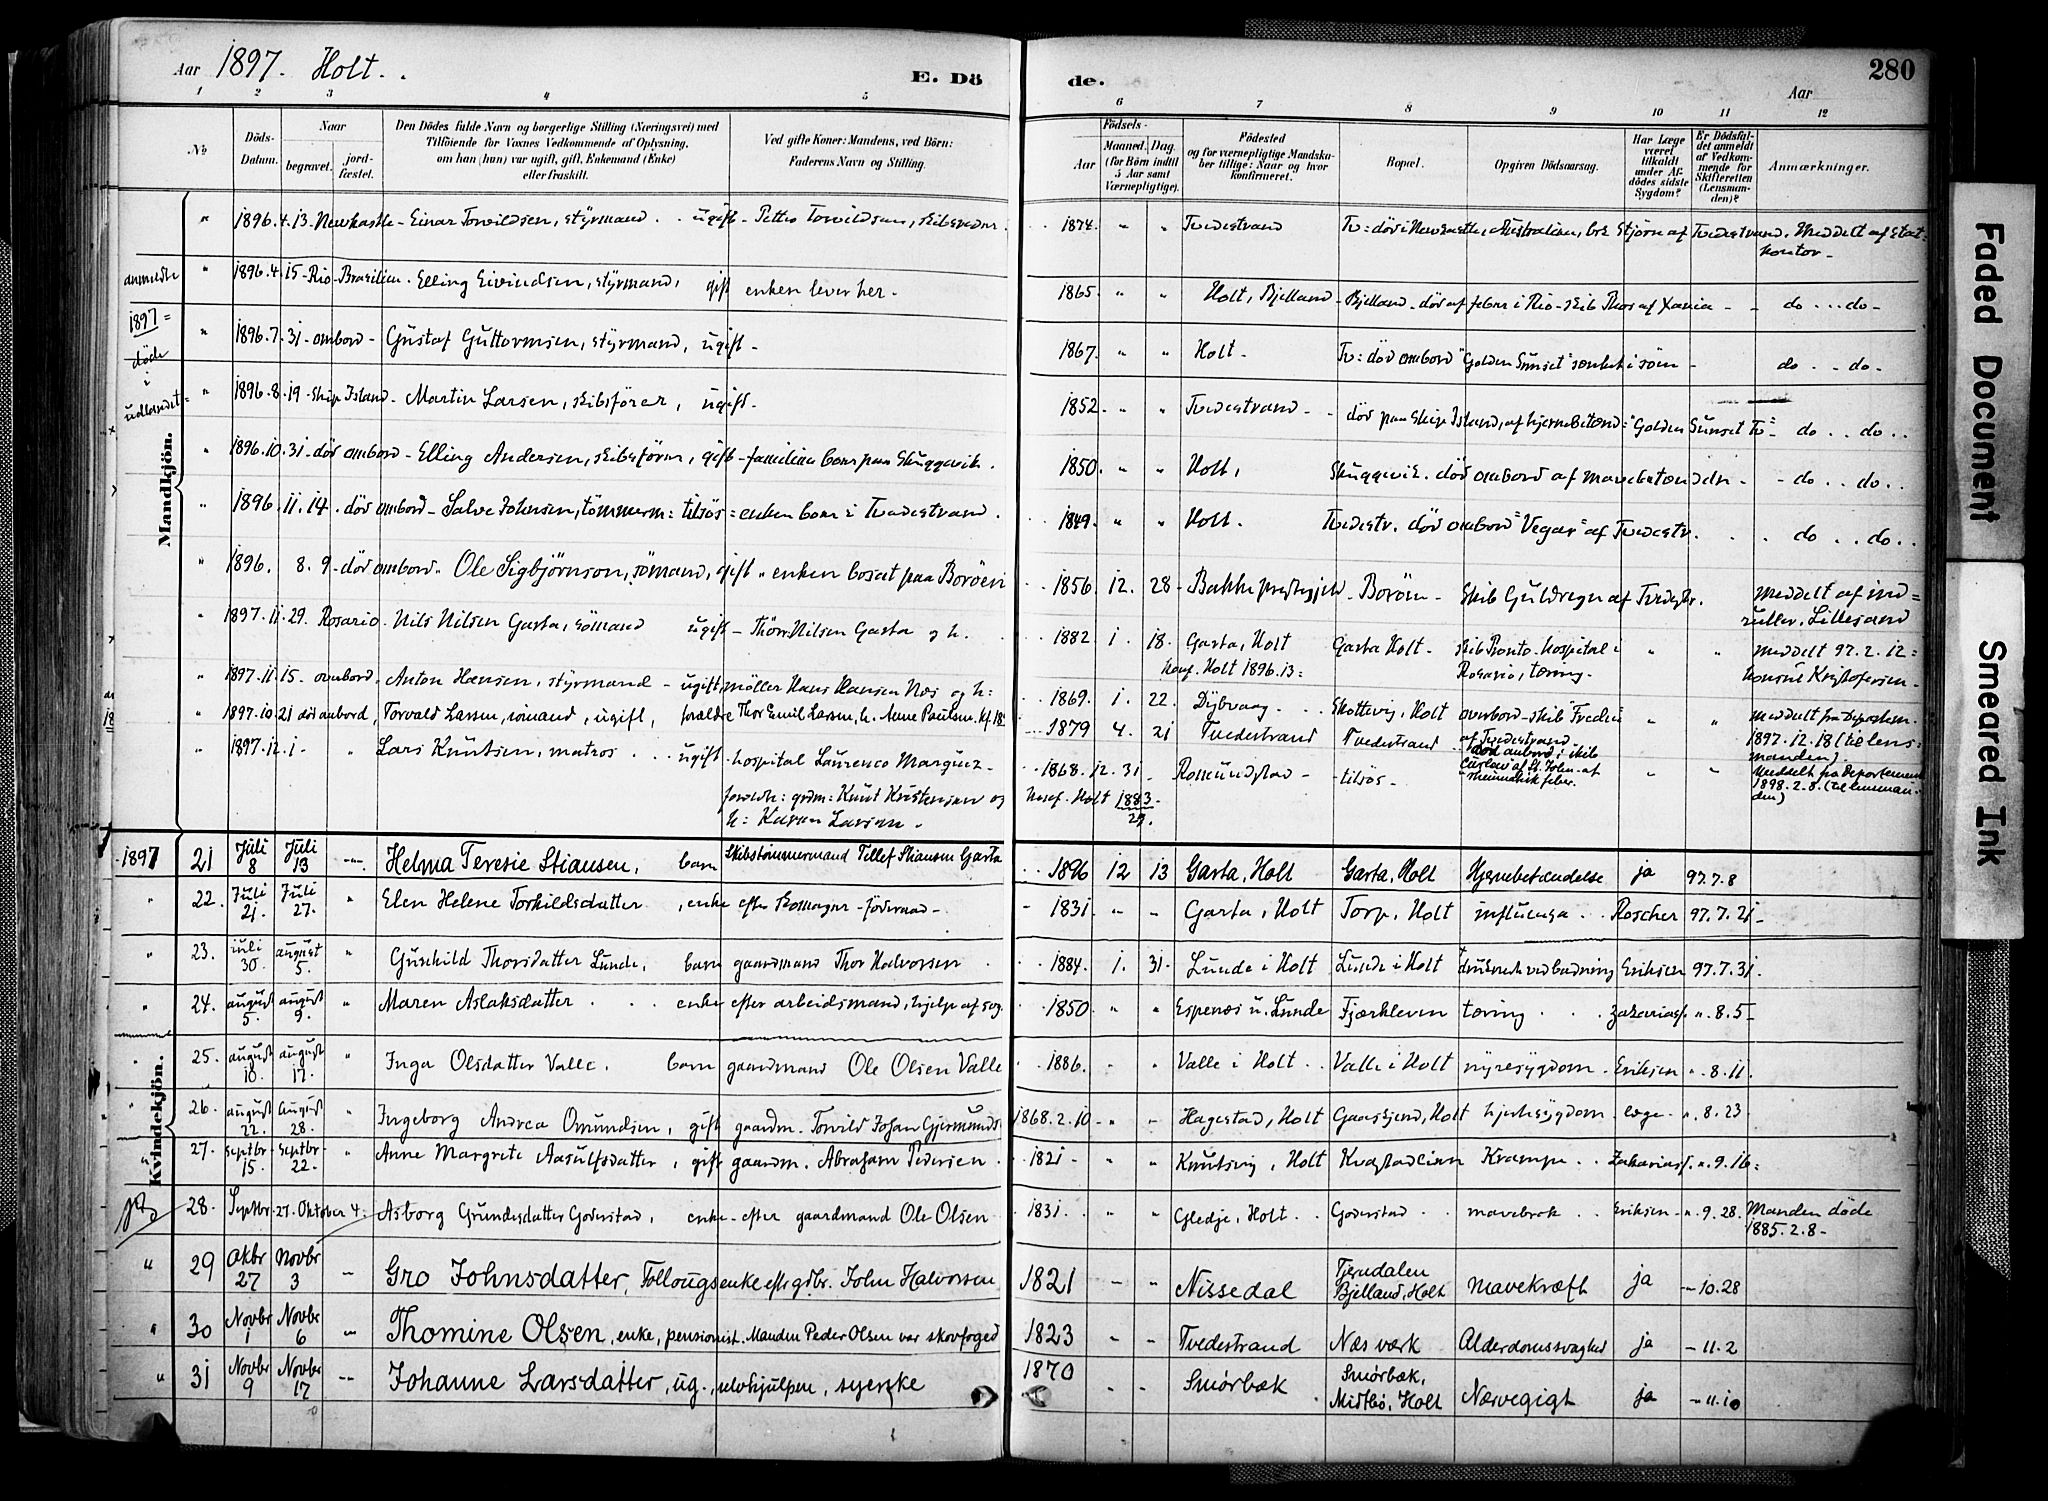 Aar 1897. Holt.
E. Dö
de.
280
Aar
1 2 3 4 5 6 7 8 9 10 11 12
No
Döds-Datum.
Naar
begravet.
jord-fæstet.
Den Dödes fulde Navn og borgerlige Stilling (Næringsvei) med
Tilföiende for Voxnes Vedkommende af Oplysning,
om han (hun) var ugift, gift, Enkemand (Enke)
eller fraskilt.
Ved gifte Koner: Mandens, ved Börn:
Faderens Navn og Stilling.
Födsels-
Aar
Maaned. Dag.
(for Börn indtil
5 Aar samt
Værnepligtige).
Födested
og for værnepligtige Mandska-
ber tillige: Naar og hvor
konfirmeret.
Bopæl.
Opgiven Dödsaarsag.
Har Læge
været
tilkaldt
under Af-
dödes sidste
Sygdom?
Er Dödsfal-
det anmeldt
af Vedkom-
mende for
Skifteretten
(Lensman-
den)?
Anmærkninger.
anmeldte
1897 =
döde
i
udlandet =
Mandkjön.
" 1896.4.13. Newkastle - Einar Torvildsen, styrmand . . ugift - Petter Torvildsen, skibsreder 1874. " " Tvedestrand Tv: död i Newcastle, Australien, brk Stjörn af Tvedestrand. Meddelt af Stat=
kontor -
" 1896.4.15 - Rio - Brasilien. Elling Eivindsen, styrmand, gift enken lever her. 1865. " " Holt, Bjelland - Bjelland - död af feber i Rio - skib Thos af Xania - - do ... do -
" 1896.7.31 - ombord - Gustaf Guttormsen, styrmand, ugift - 1867. " " Holt - Tv: död ombord "Golden Sunset" sænket i söm - do . . do -
" 1896.8.19 - Ship Island - Martin Larsen, skibsförer, ugift - 1852. " " Tvedestrand - - död paa Ship Island, af hjernebetænd: "Golden Sunset Tv= - do . . do . .
" 1896.10.31 - död ombord - Elling Andersen, skibsförer, gift - familien boer paa Skuggevik. 1850. " " Holt, Skuggevik. död ombord af mavebetændelse - - do . . do . .
" 1896. 11. 14. död ombord - Salve Johnsen, tömmerm: tilsös = enken boer i Tvedestrand. 1849. " " Holt. Tvedestr. död ombord "Vegar" af Tvedestr. . . do . . do . .
" 1896. 8. 9. död ombord. Ole Sigbjörnson, sömand, gift " enken bosat paa Boröen 1856 12. 28 - Bakke prestegjeld - Boröen - Skib Guldregn af Tvedestr. Meddelt af ind=
ruller. Lillesand
" 1897.11.29. Rosario. Nils Nilsen Garta, sömand ugift - Thor Nilsen Garta og h. 1882 1. 18. Garta, Holt Garta Holt. skib Pronto. hospital i " " meddelt 97.2.12=
konf. Holt 1896.13= Rosario, tæring. konsul Kristofersen.
" 1897.11.15. overbord. Anton Hansen, styrmand - ugift, möller Hans Hansen Næs og h: 1869. 1. 22. Dybvaag . . Skottevig, Holt overbord - skib Fredin " " Meddelt fra Departem.
af Tvedestrand 1897.12.18 (til lens=
manden).
" 1897.10.21 död ombord, Torvald Larsen, sömand, ugift, forældre Thor Emil Larsen, h. Anne Paulsen. 1879 4. 21 Tvedestrand Tvedestrand
" 1897.12.1. " Lars Knutsen, matros . . . ugift. hospital Laurenco Marquez - 1868.12.31 - Romundstad - tilsös - rheumatisk feber. " " Meddelt fra Departement
forældre: grdm: Knut Kristensen og konf. Holt 1883. 1898.2.8. (til lensman-
h: Karen Larsen. 29. den)
Kvindekjön.
1897 21 Juli 8 Juli 13 -"- Helma Teresie Stiansen, barn Skibstömmermand Tellef Stiansen Garta 1896 12 13 Garta, Holt Garta, Holt Hjernebetændelse ja 97.7.8
" 22. Juli 21. Juli 27. " Elen Helene Torkildsdatter, enke efter Skomager - föderaad - 1831. " " Garta, Holt Torp, Holt influensa . . Roscher 97.7.21 -
" 23. juli 30. august 5. " Gunhild Thorsdatter Lunde, barn gaardmand Thor Halvorsen 1884. 1. 31. Lunde i Holt Lunde i Holt druknede ved badning Eriksen 97.7.31.
" 24. august 5. august 9. " Maren Aslaksdatter . . . enke efter arbeidsmand, hjelp af sog. 1850 " " Espenæs u. Lunde Fjærkleven tæring . . Zakariass. ". 8.5 -
" 25. august 10. august 17. " Inga Olsdatter Valle. barn gaardmand Ole Olsen Valle 1886. " " Valle i Holt . . Valle i Holt nyresygdom . Eriksen ". 8.11.
" 26. august 22. august 28. " Ingeborg Andrea Omundsen, gift gaardm. Torvild Johan Gjermunds 1868.2.10 - " - Hagestad, Holt Gaaskjend, Holt hjertesygdom læge - ". 8.23
" 27. septbr. 15. septbr. 22. " Anne Margrete Aasulfsdatter, gift gaardm. Abraham Pedersen. 1821. " " Knutsvig, Holt Kvastadlien Krampe . . Zakariass. ". 9.16=
28. Septbr. 27. Oktober 4. Asborg Gundersdatter Goderstad, enke - efter gaardmand Ole Olsen 1831. " " Gledje, Holt . . Goderstad . . mavebrok . . Eriksen - ". 9.28. Manden döde
1885.2.8 -
" 29 Oktbr 27 Novbr 3 - Gro Johnsdatter, Follougsenke eftr gdbr. John Halvorsen 1821 - " Nissedal Tjerndalen
Bjelland, Holt mavekræft ja - 10.28
" 30 Novbr 1 Novbr 6 - Thomine Olsen, enke, pensionist. Manden Peder Olsen var skovfoged 1823 - - Tvedestrand Næs værk Alderdomssvaghed ja - 11.2
" 31 Novbr 9 Novbr 17 - Johanne Larsdatter, ug., selvhjulpen, syerske 1870 " " Smörbæk Smörbæk,
Midtbö, Holt Nervegigt ja - 11.10
Faded Document
Smeared Ink